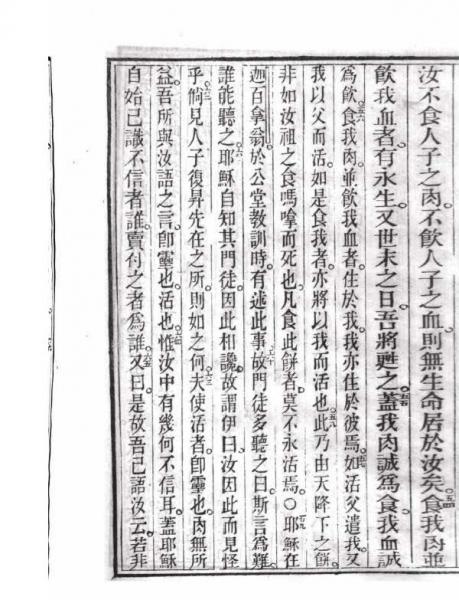 汝不食人子之肉。不飲人子之血。則無生命居於汝矣。食我肉並
飲我血者。有永生。又世末之日。吾將甦之。蓋我肉誠為食。我血誠
為飲。食我肉。並飲我血者。住於我。我亦住於彼焉。如活父遣我。又
我以父而活。如是食我者。亦將以我而活也。此乃由天降下之餅。
非如汝祖之食嗎嗱而死也。凡食此餅者。莫不永活焉。○耶穌在
迦百拿翁。於公堂教訓時。有述此事。故門徒多聽之曰。斯言為難。
誰能聽之。耶穌自知其門徒因此相讒。故謂伊曰。汝因此而見怪
乎。倘見人子復昇先在之所。則如之何。夫使活者。卽靈也。肉無所
益。吾所與汝語之言。卽靈也。活也。惟汝中有幾何不信耳。蓋耶穌
自始已識不信者誰。賣付之者為誰。又曰。是故吾已語汝云。若非